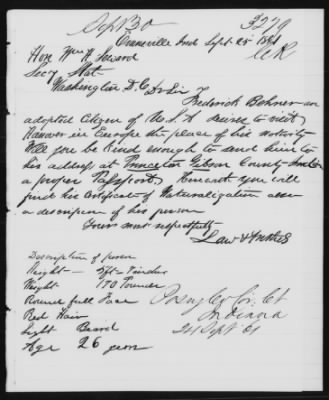 Sept 30
3279
Evansville Ind Sept 25 1861
Hon Wm H. Seward
Secy State
Washington D.C. Dr Sir
Frederick Behner an
adopted Citizen of U.S.A desires to visit
Hanover in Europe the place of his nativity
Will you be kind enough to send him to
his address at Princeton Gibson County Indiana
a proper Passport. Herewith you will
find his Certificate of Naturalization also
a description of his person
Yours most respectfully
Law &
Description of person
Height — 5ft = 7 inches
Weight 170 Pounds
Round full Face
Red Hair
Light Beard
Age 26 years
Posey Co Cir. Ct
Indiana
24 Sept 61